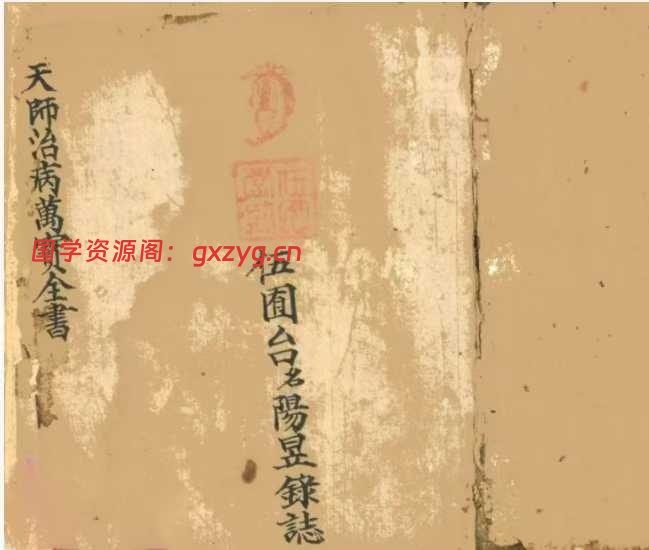 伍囿台名陽昱錄誌
天師治病萬寶全書
国学资源阁：gxzyg.cn